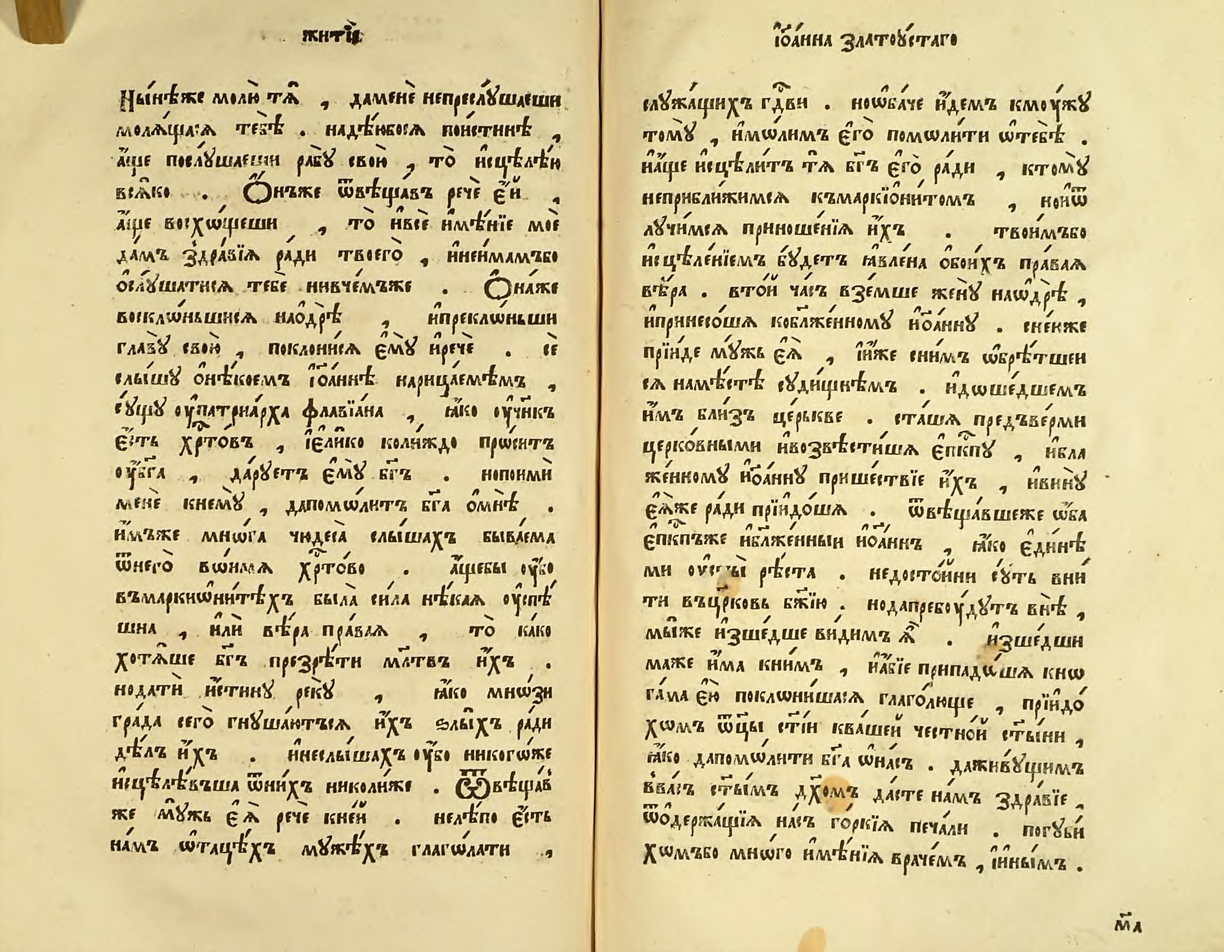 житїѐ
Ны́нѣже молю̀ тѧ̀ , даменѐ непреслꙋ́шаеши
молѧ́щаѧсѧ тебѣ̀ . надѣ́юбосѧ пои́стинѣ ,
а҆́ще послꙋ́шаеши рабꙋ̀ свою̀ , то̀ и҆сцѣлѣ́ю
всѧ́ко . Ѻ҆́нъже ѿвѣща́въ речѐ е҆́й ,
а҆́ще восхѡ́щеши , то̀ и҆всѐ и҆мѣ́нїе моѐ
да́мъ здра́вїѧ ра́ди твоегѡ̀ , и҆неи́мамъбо
ѻ҆слꙋ́шатисѧ тебѐ нивче́мъже . Ѻ҆на́же
восклѡ́ньшисѧ нао҆дрѣ̀ , и҆преклѡ́ньши
главꙋ̀ свою̀ , поклони́сѧ е҆мꙋ̀ и҆речѐ . сѐ
слы́шꙋ о҆нѣ́коемъ і҆ѡа́ннѣ нарица́емѣмъ ,
сꙋ́щꙋ ᲂу҆патриа́рха флавїа́на , ꙗ҆́ко ᲂу҆чн҃къ
е҆́сть хрⷭ҇то́въ , і҆ели́ко коли́ждо про́ситъ
ᲂу҆бг҃а , да́рꙋетъ е҆мꙋ̀ бг҃ъ . нопоимѝ
менѐ кнемꙋ̀ , дапомѡ́литъ бг҃а ѡ҆мнѣ̀ .
и҆́мъже мнѡ́га чюдеса̀ слы́шахъ быва́ема
ѿнегѡ̀ вѡ́имѧ хрⷭ҇то́во . а҆́щебы ᲂу҆́бо
въмаркиѡни́тѣхъ была̀ си́ла нѣ́каѧ ᲂу҆спѣ́
шна , и҆лѝ вѣ́ра пра́ваѧ , то̀ ка́ко
хотѧ́ше бг҃ъ презрѣ́ти мл҃твъ и҆́хъ .
нода́ти и҆́стинꙋ рекꙋ̀ , ꙗ҆́ко мнѡ́зи
гра́да сегѡ̀ гнꙋша́ютъсѧ и҆́хъ ѕлы́хъ ра́ди
дѣ́лъ и҆́хъ . и҆неслы́шахъ ᲂу҆́бо никогѡ́же
и҆сцѣлѣ́въша ѿни́хъ николи́же . Ѿвѣща́в
же мꙋ́жь е҆ѧ̀ речѐ кне́й . нелѣ́по е҆́сть
на́мъ ѡ҆таце́хъ мꙋже́хъ глаго́лати ,
і҆ѡа́нна златоꙋ́стаго
слꙋжа́щихъ гдⷭ҇ви .ноѡ҆ба́че и҆́демъ кмоу́жꙋ
томꙋ̀ , и҆мо́лимъ е҆го̀ помоли́ти ѡ҆тебѣ̀ .
и҆а҆́ще и҆сцѣли́тъ тѧ̀ бг҃ъ е҆гѡ̀ ра́ди , ктомꙋ̀
неприбли́жимсѧ къмаркїо́нитомъ , ноиѿ
лꙋчи́мсѧ приноше́нїѧ и҆́хъ . твои́мъбо
и҆сцѣле́нїемъ бꙋ́детъ ꙗ҆вле́на о҆бои́хъ пра́ваѧ
вѣ́ра . вто́й ча́съ взе́мше женꙋ̀ наѡ҆дрѣ̀ ,
и҆принесо́шѧ кобл҃же́нномꙋ и҆ѡа́ннꙋ . сне́юже
прїи́де мꙋ́жь е҆ѧ̀ , і҆и́же сни́мъ ѡ҆брѣ́тшеи
сѧ намѣ́стѣ сꙋди́щнѣмъ . и҆дѡше́дшемъ
и҆́мъ бли́зъ це́рькве . ста́шѧ предъве́рми
церко́вными и҆возвѣсти́шѧ е҆пⷭ҇кпꙋ , и҆бла
же́нномꙋ и҆ѡа́ннꙋ прише́ствїе и҆́хъ , и҆винꙋ̀
е҆ѧ́же ра́ди прїидо́шѧ . ѿвѣща́вшеже ѡ҆́ба
е҆пⷭ҇кпъже и҆бл҃же́нныи и҆ѡа́ннъ , ꙗ҆́ко е҆ди́нѣ
ми ᲂу҆сты̀ рѣ́ста . недосто́йни сꙋ́ть вни́
ти въцр҃ковь бж҃їю . нодапребоу́дꙋтъ внѣ̀ ,
мы́же и҆зше́дше ви́димъ ѧ҆̀ . и҆зше́дши
маже и҆́ма кни́мъ , и҆а҆́бїе припадо́шѧ кно
га́ма е҆ю̀ поклони́шасѧ глаго́люще , прїидо́
хѡмъ ѿц҃ы ст҃і́и ква́шей че́стной ст҃ы́ни ,
ꙗ҆́ко дапомо́лити бг҃а ѡ҆на́съ . даживꙋ́щимъ
вва́съ ст҃ы́мъ дх҃омъ дастѐ на́мъ здра́вїе ,
ѿѡдержа́щїѧ на́съ го́ркїѧ печа́ли . погꙋби́
хѡмъбо мно́го и҆мѣ́нїѧ врачѐмъ , і҆и҆ны́мъ .
м҃д